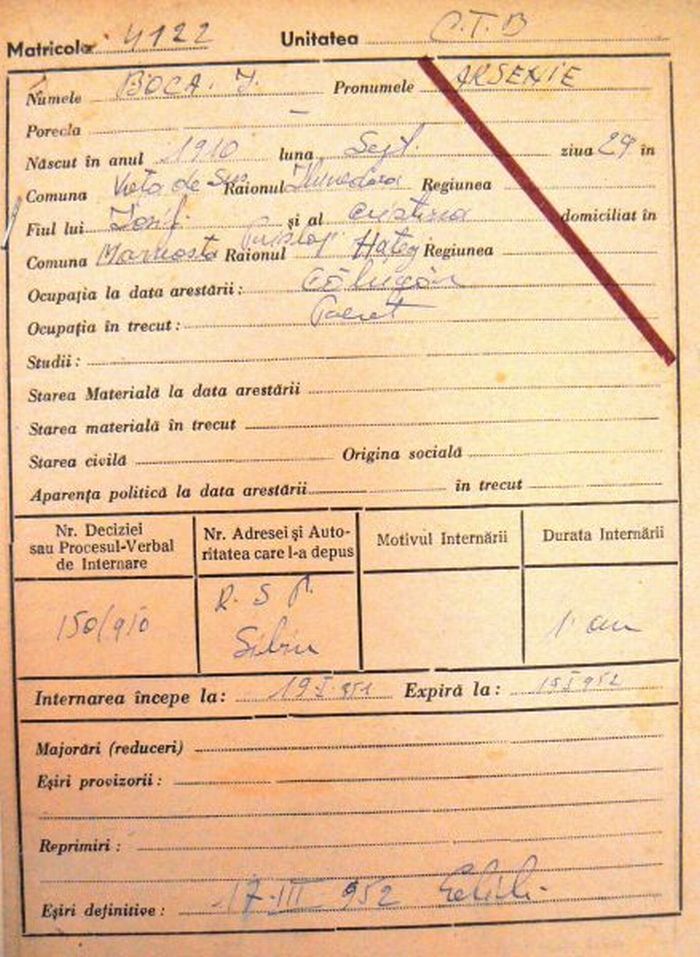 Matricola 4122 Unitatea C.T.B
Numele BOCA. I. Pronumele ARSENIE
Porecla —
Născut în anul 1910 luna Sept. ziua 29 în
Comuna Vața de Sus Raionul Hunedoara Regiunea
Fiul lui Iosif. și al Cristina domiciliat în
Prislop
Comuna Raionul Hațeg Regiunea
Ocupația la data arestării: Călugăr
Ocupația în trecut: Preot
Studii:
Starea Materială la data arestării
Starea materială în trecut
Starea civilă Origina socială
Aparența politică la data arestării în trecut
Nr. Deciziei
sau Procesul-Verbal
de Internare
Nr. Adresei și Auto-
ritatea care l-a depus
Motivul Internării
Durata Internării
150/950
Sibiu
1 an
Internarea începe la: 19 I. 951 Expiră la: 15 I 952
Majorări (reduceri)
Eșiri provizorii:
Reprimiri:
Eșiri definitive: 17-III 952